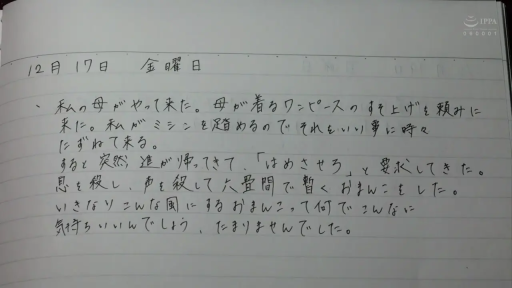 IPPA
12月17日 金曜日
、私の母がやって来た。母が着るワンピースのすそ上げを頼みに
来た。私がミシンを踏めるのでそれをいい事に時々
たずねて来る。
すると突然進が帰ってきて、「はめさせろ」と要求してきた。
息を殺し、声を殺して六畳間で暫くおまんこをした。
いきなりこんな風にするおまんこって何でこんなに
気持ちいいんでしょう、たまりませんでした。